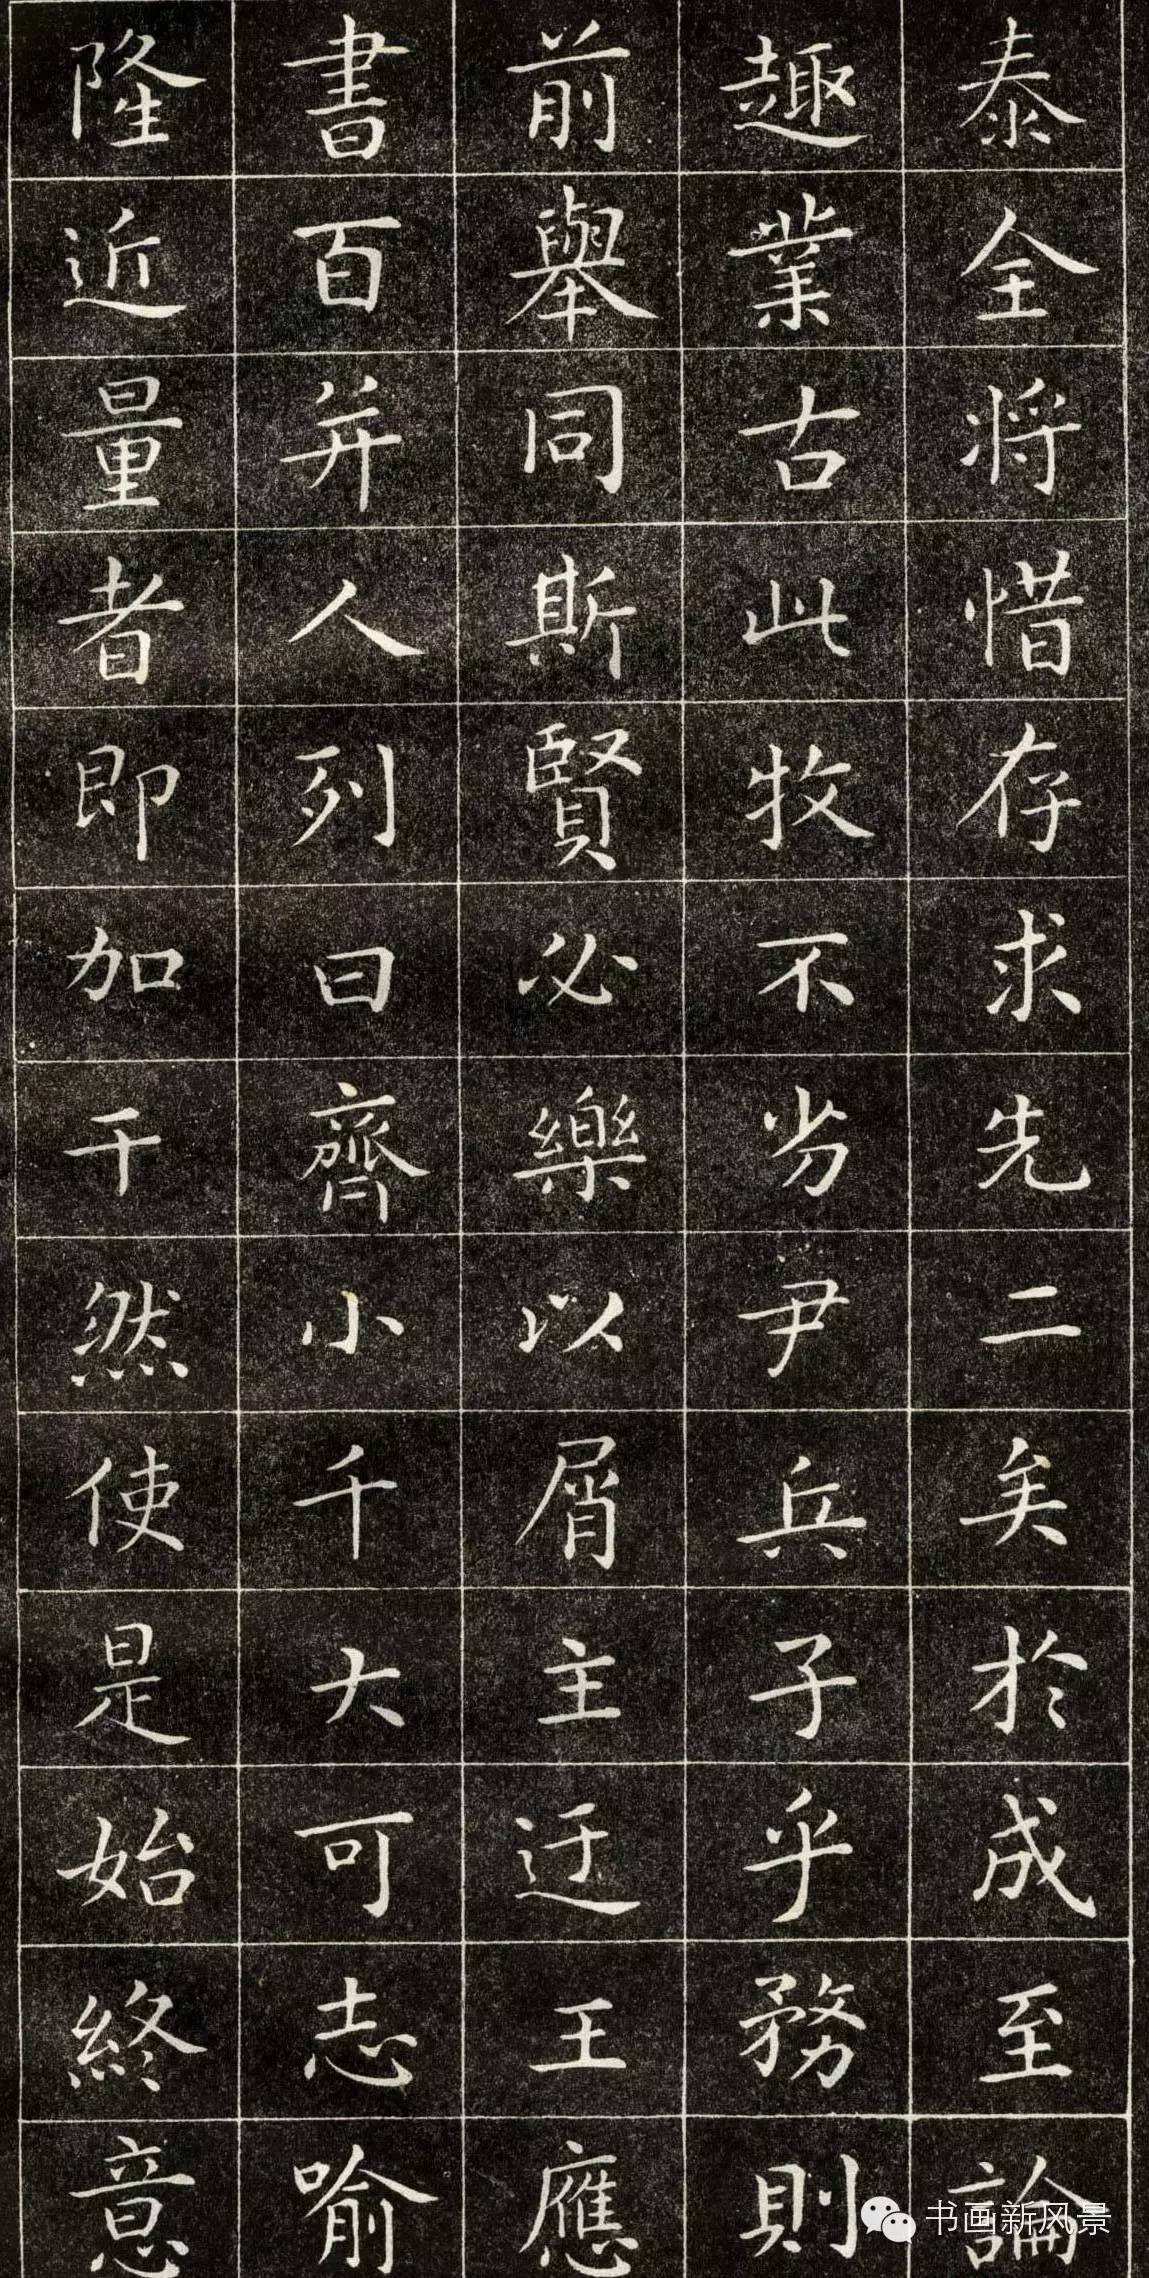 泰全將惜存求先二矣於成至論
趣業古此牧不劣尹兵子乎務則
前舉同斯賢必樂以屑主迂王應
書百并人列曰齊小千大可志喻
隆近量者即加干然使是始終意
书画新风景